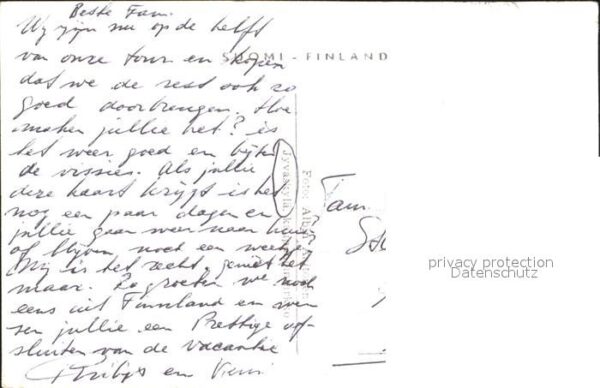 Beste Fam.
Wij zijn nu op de helft
van onze tour en hopen
dat we de rest ook zo
goed doorbrengen. Hoe
maken jullie het? is
het weer goed en bijten
de vissies. Als jullie
deze kaart krijgt is het
nog een paar dagen en
jullie gaan weer naar huis?
of blijven noch een weekje
Mij is het recht, geniet het
maar. Zo groeten we noch
eens uit Finnland en wen
sen jullie een Prettige af-
sluiten van de vacantie
en
SUOMI - FINLAND
Jyväskylä
Foto:
Fam.
privacy protection
Datenschutz